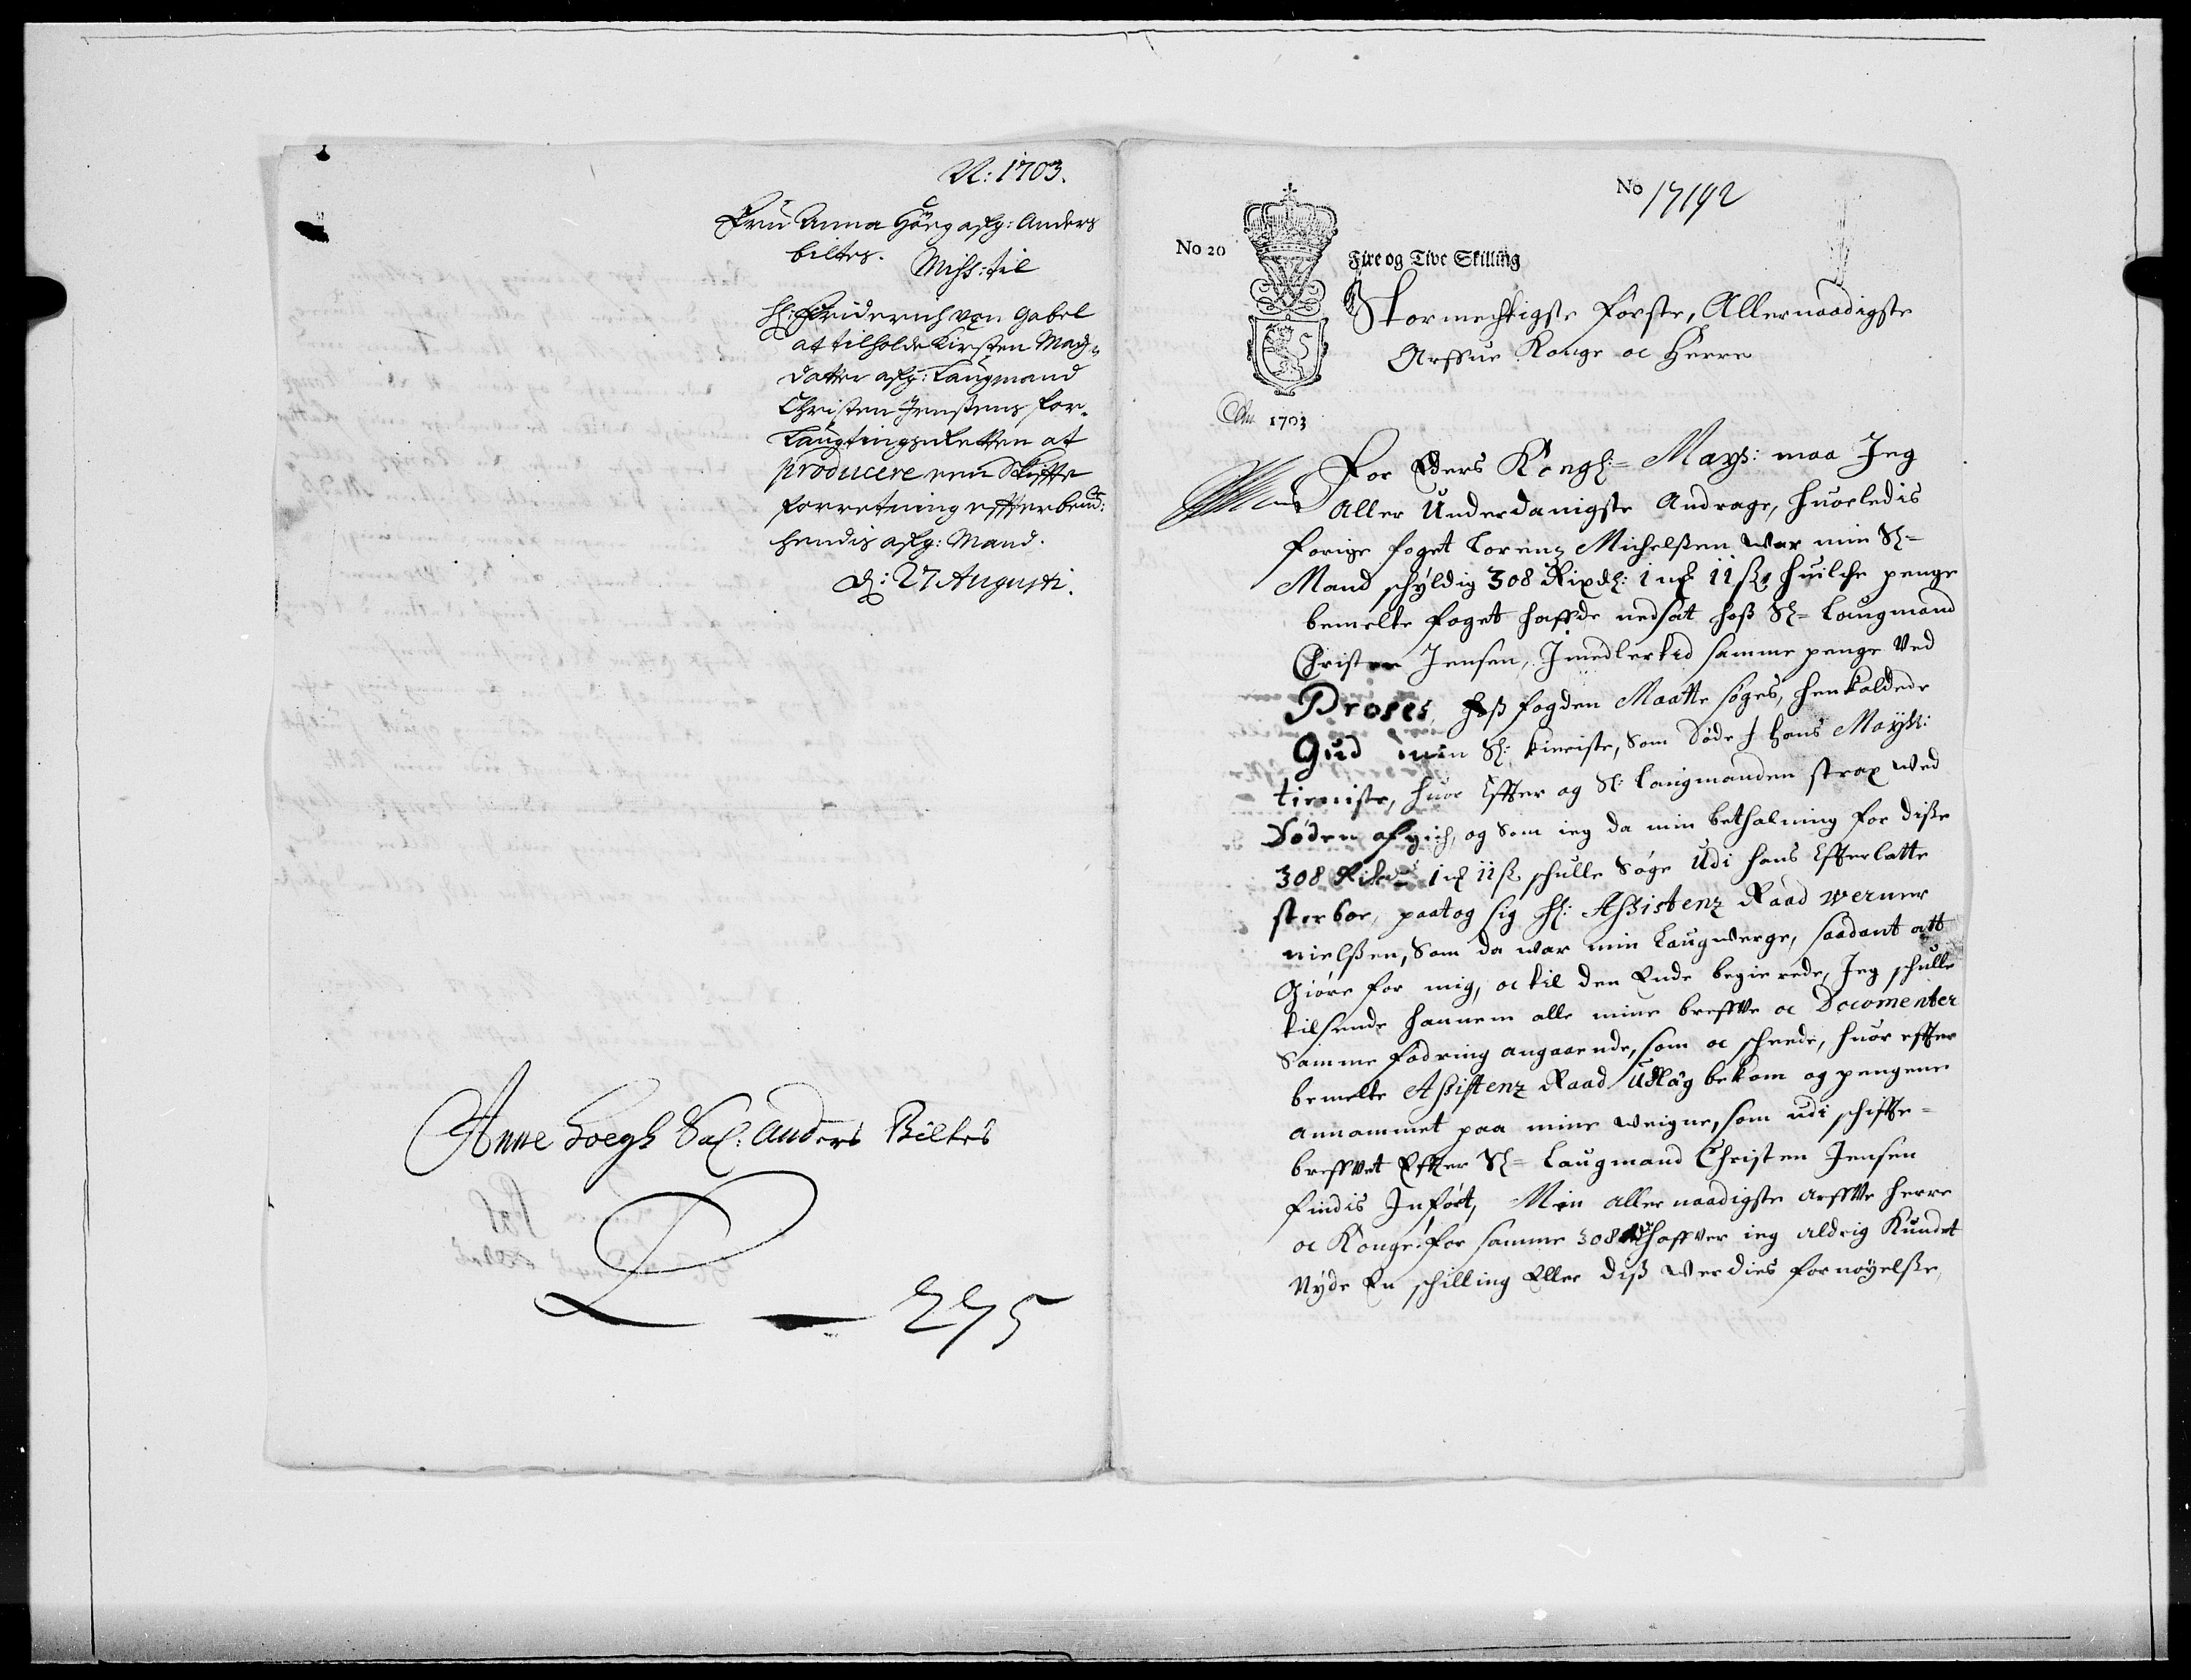 N: 1703.
Fru Anna Höeg afg: Anders
biltes.
Miss: til
H: Friderich von Gabel
at tilholde Kirsten Mad-
datter afg: Laugmand
Christen Jenssens for
Laugtingsretten at
producere een Skiffte
forretning effter bemt:
hendis afg: Mand.
d: 27 Augusti.
Anne Hoegh Sal: Anders Biltes
275
No 17192
No 20
Fire og Tive Skilling
Stormechtigste Förste, Allernaadigste
Arffue Konge oc Herre
Ao 1703
For Eders Kongl:= Mays: maa Jeg
Aller Underdanigste Andrage, huorledis
forige foget Lorenz Michelssen war min Sl=
Mand schyldig 308 Rixdl: 1 mk 11 ss, huilche penge
bemelte foget haffde nedsat hoss Sl= Laugmand
Christen Jensen, Imedlertid samme penge Ved
Proses, hoss fogden Maatte söges, henkaldede
Gud min Sl: kieriste, Som döde J Hans Mayts:
tieniste, huor Effter og Sl: Laugmanden strax wed
Döden afgich, og Som ieg da min bethalning for disse
308 Rixdr 1 mk 11 ss schulle Söge Udi hans Efterlatte
sterboe, paatog sig H: Assistenz Raad werner
nielssen, Som da war min Laugwerge, saadant att
Giöre for mig, oc til den Ende begierede, Jeg schulle
tilsende hannem alle mine breffve oc Documenter
Samme fodring angaaende, som oc scheede, huor effter
bemelte Assistenz Raad Udlæg bekom og pengene
annammet paa mine weigne, som udi schiffte=
breffvet Effter Sl= Laugmand Christen Jensen
findis Infört, Min aller naadigste arffve herre
oc Konge: for samme 308 Rdr haffver ieg aldrig Kundet
Nyde En schilling Eller diss werdies fornöyelsse,